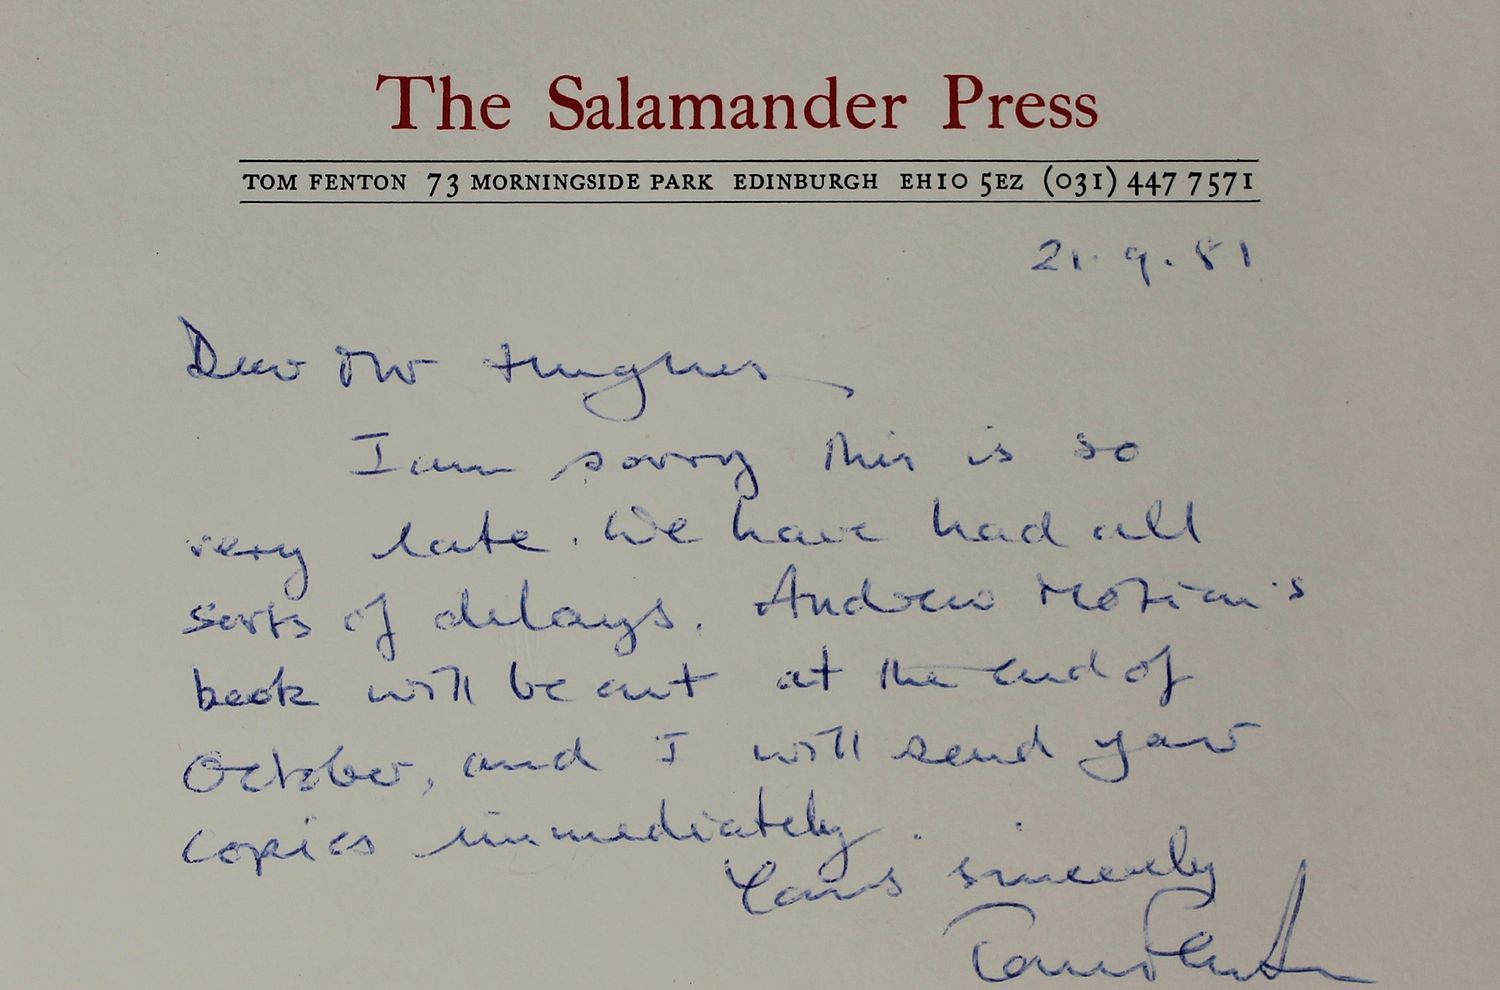 The Salamander Press
TOM FENTON 73 MORNINGSIDE PARK EDINBURGH EH10 5EZ (031) 447 7571
21. 9. 81
Dear Mr Hughes
I am sorry this is so
very late. We have had all
sorts of delays. Andrew Motion's
book will be out at the end of
October, and I will send your
copies immediately.
Yours sincerely
Tom Fenton